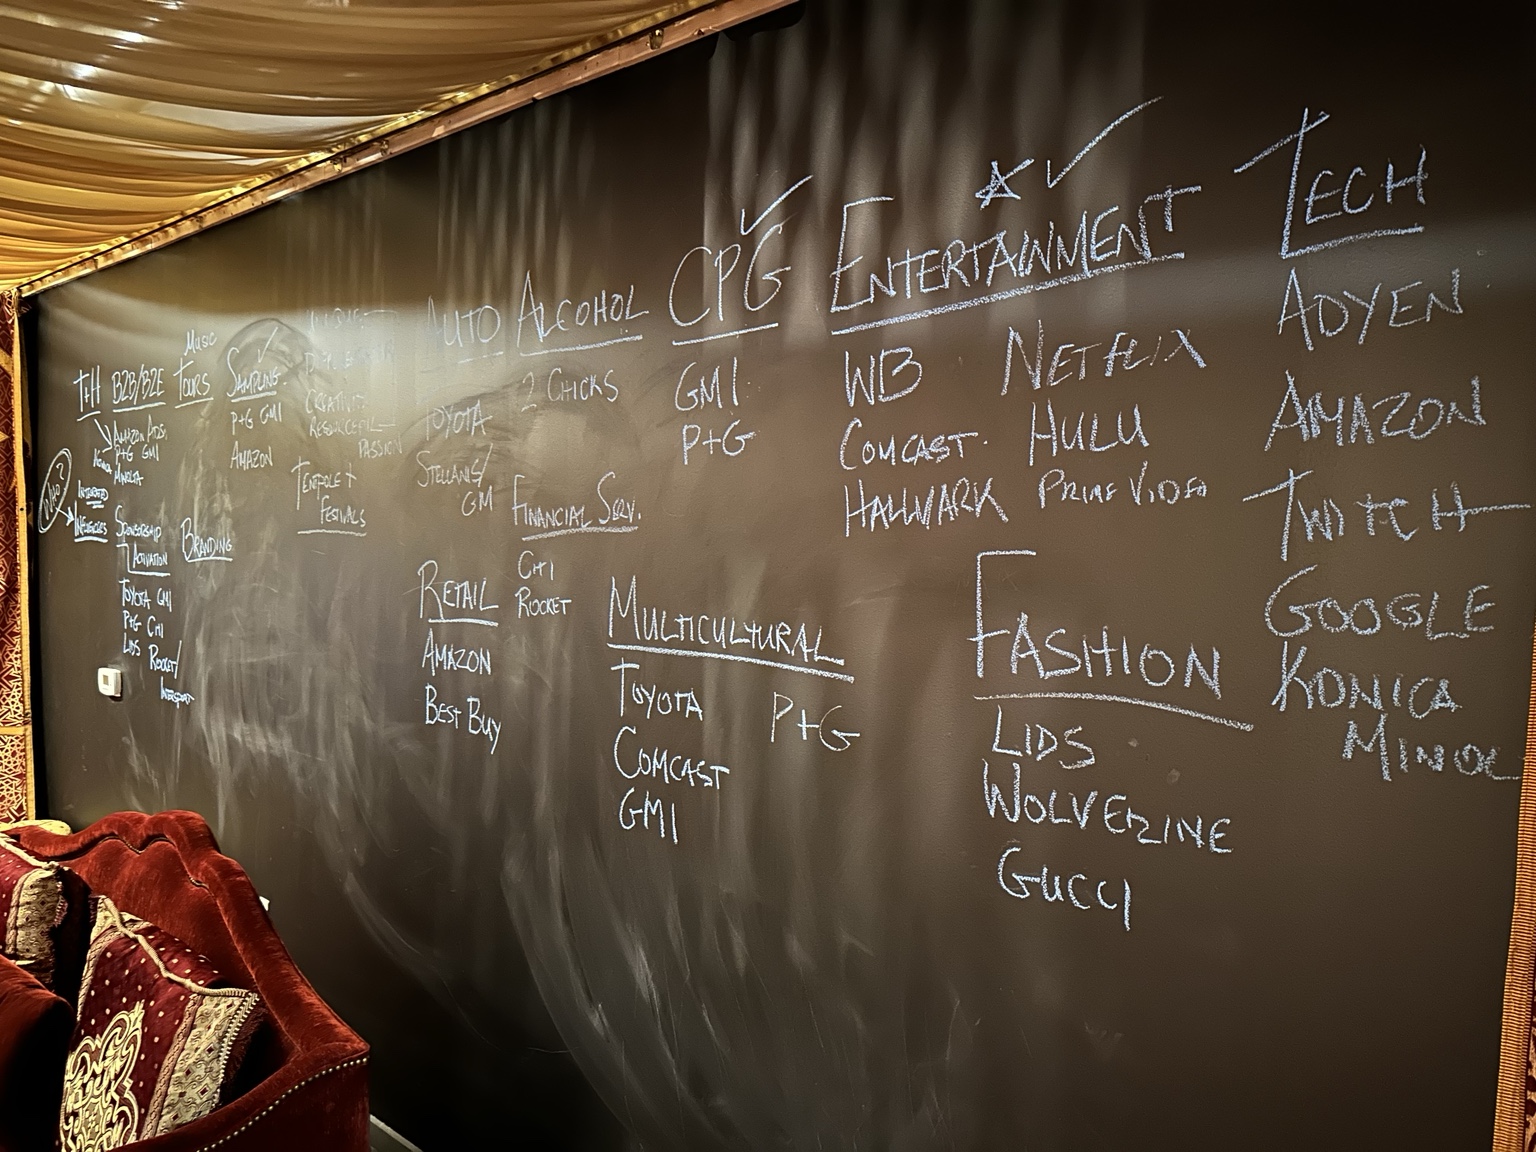 T+H
B2B/B2E
AMAZON ADS.
P+G GMI
MINOLTA
WHO?
SPONSORSHIP
ACTIVATION
TOYOTA GMI
P+G CHI
LIDS ROCKET/
MUSIC
TOURS
BRANDING
SAMPLING
P+G GMI
AMAZON
CREATIVE
PASSION
TENTPOLE +
FESTIVALS
AUTO
TOYOTA
STELLANIS/
GM
RETAIL
AMAZON
BEST BUY
ALCOHOL
2 CHICKS
FINANCIAL SERV.
CHI
ROCKET
CPG
GMI
P+G
MULTICULTURAL
TOYOTA P+G
COMCAST
GMI
ENTERTAINMENT
WB NETFLIX
COMCAST HULU
HALLMARK PRIME VIDEO
FASHION
LIDS
WOLVERINE
GUCCI
TECH
ADYEN
AMAZON
TWITCH
GOOGLE
KONICA
MINOL